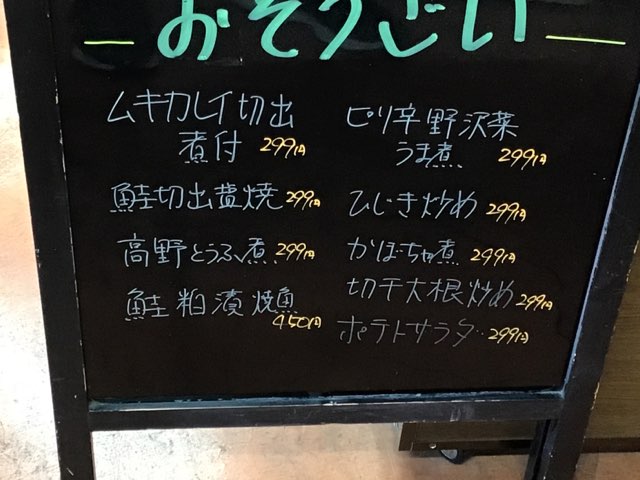 おそうざい
ムキカレイ切出
煮付 299円
鮭切出貫焼 299円
高野とうふ煮 299円
鮭粕漬焼魚
450円
ピリ辛野沢菜
うま煮 299円
ひじき炒め 299円
かぼちゃ煮 299円
切干大根炒め 299円
ポテトサラダ 299円